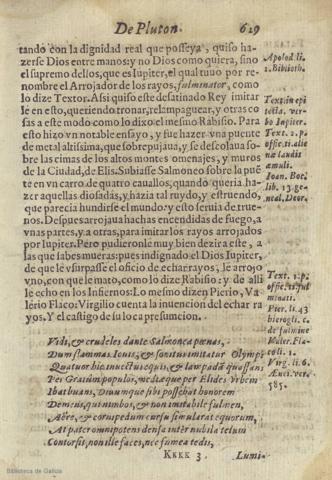 De Pluton. 629
tando con la dignidad real que posseya, quiso ha-
zerse Dios entre manos: y no Dios como quiera, sino
el supremo dellos, que es Iupiter, el qual tuuo por re-
nombre el Arrojador de los rayos, fulminator, como
lo dize Textor. Assi quiso este desatinado Rey imitar
le en esto, queriendo tronar, relampaguear, y otras co
sas a este modo como lo dixo el mesmo Rabisio. Para
esto hizo vn notable ensayo, y fue hazer vna puente
de metal altissima, que sobrepujaua, y se descolaua so-
bre las cimas de los altos montes omenajes, y muros
de la Ciudad, de Elis. Subiasse Salmoneo sobre la puē
te en vn carro de quatro cauallos; quando queria ha-
zer aquellas diosadas, y hazia tal ruydo, y estruendo,
que parecia hundirse el mundo y esto seruia de true-
nos. Despues arrojaua hachas encendidas de fuego, a
vnas partes, y a otras, para imitar los rayos arrojados
por Iupiter. Pero pudieronle muy bien dezir a este, a
las que sabes mueras: pues indignado el Dios Iupiter,
de que le vsurpasse el oficio de echar rayos, le arrojo
vno, con que le mato, como lo dize Rabisio: y de alli
le echo en los Infiernos: Lo mesmo dizen Pierio, Va-
lerio Flaco: Virgilio cuenta la inuencion del echar ra
yos. Y el castigo de su loca presumcion.
Vidi, & crudeles dante Salmonea pœnas,
Dum flammas Iouis, & sonitus imitatur Olympi
Quatuor hic inuectus equis, & lampada quassans
Per Graiûm populos, mediæque per Elidis Vrbem
Ibat ouans, Diuumque sibi poscebat honorem
Demens, qui nimbos, & non imitabile fulmen,
Aëre, & cornipedum cursu simularat equorum,
At pater omnipotens densa inter nubila telum
Contorsit, non ille faces, nec fumea tedis,
Kkkk 3 Lumi-
Apolod li.
1. Biblioth.
Text. in epi
teta. ver-
bo Iupiter.
Text. 2. p.
offic. ti. alie
næ laudis
æmuli.
Ioan. Boc.
lib. 13. ge-
neal. Deor.
Text. 1. p.
offic. ti. ful
minati.
Pier. li. 43
hierogli. c.
de fulmine
Valer. Fla-
coli. 1.
Virg. li. 6.
Ænei. ver.
585.
Biblioteca de Galicia